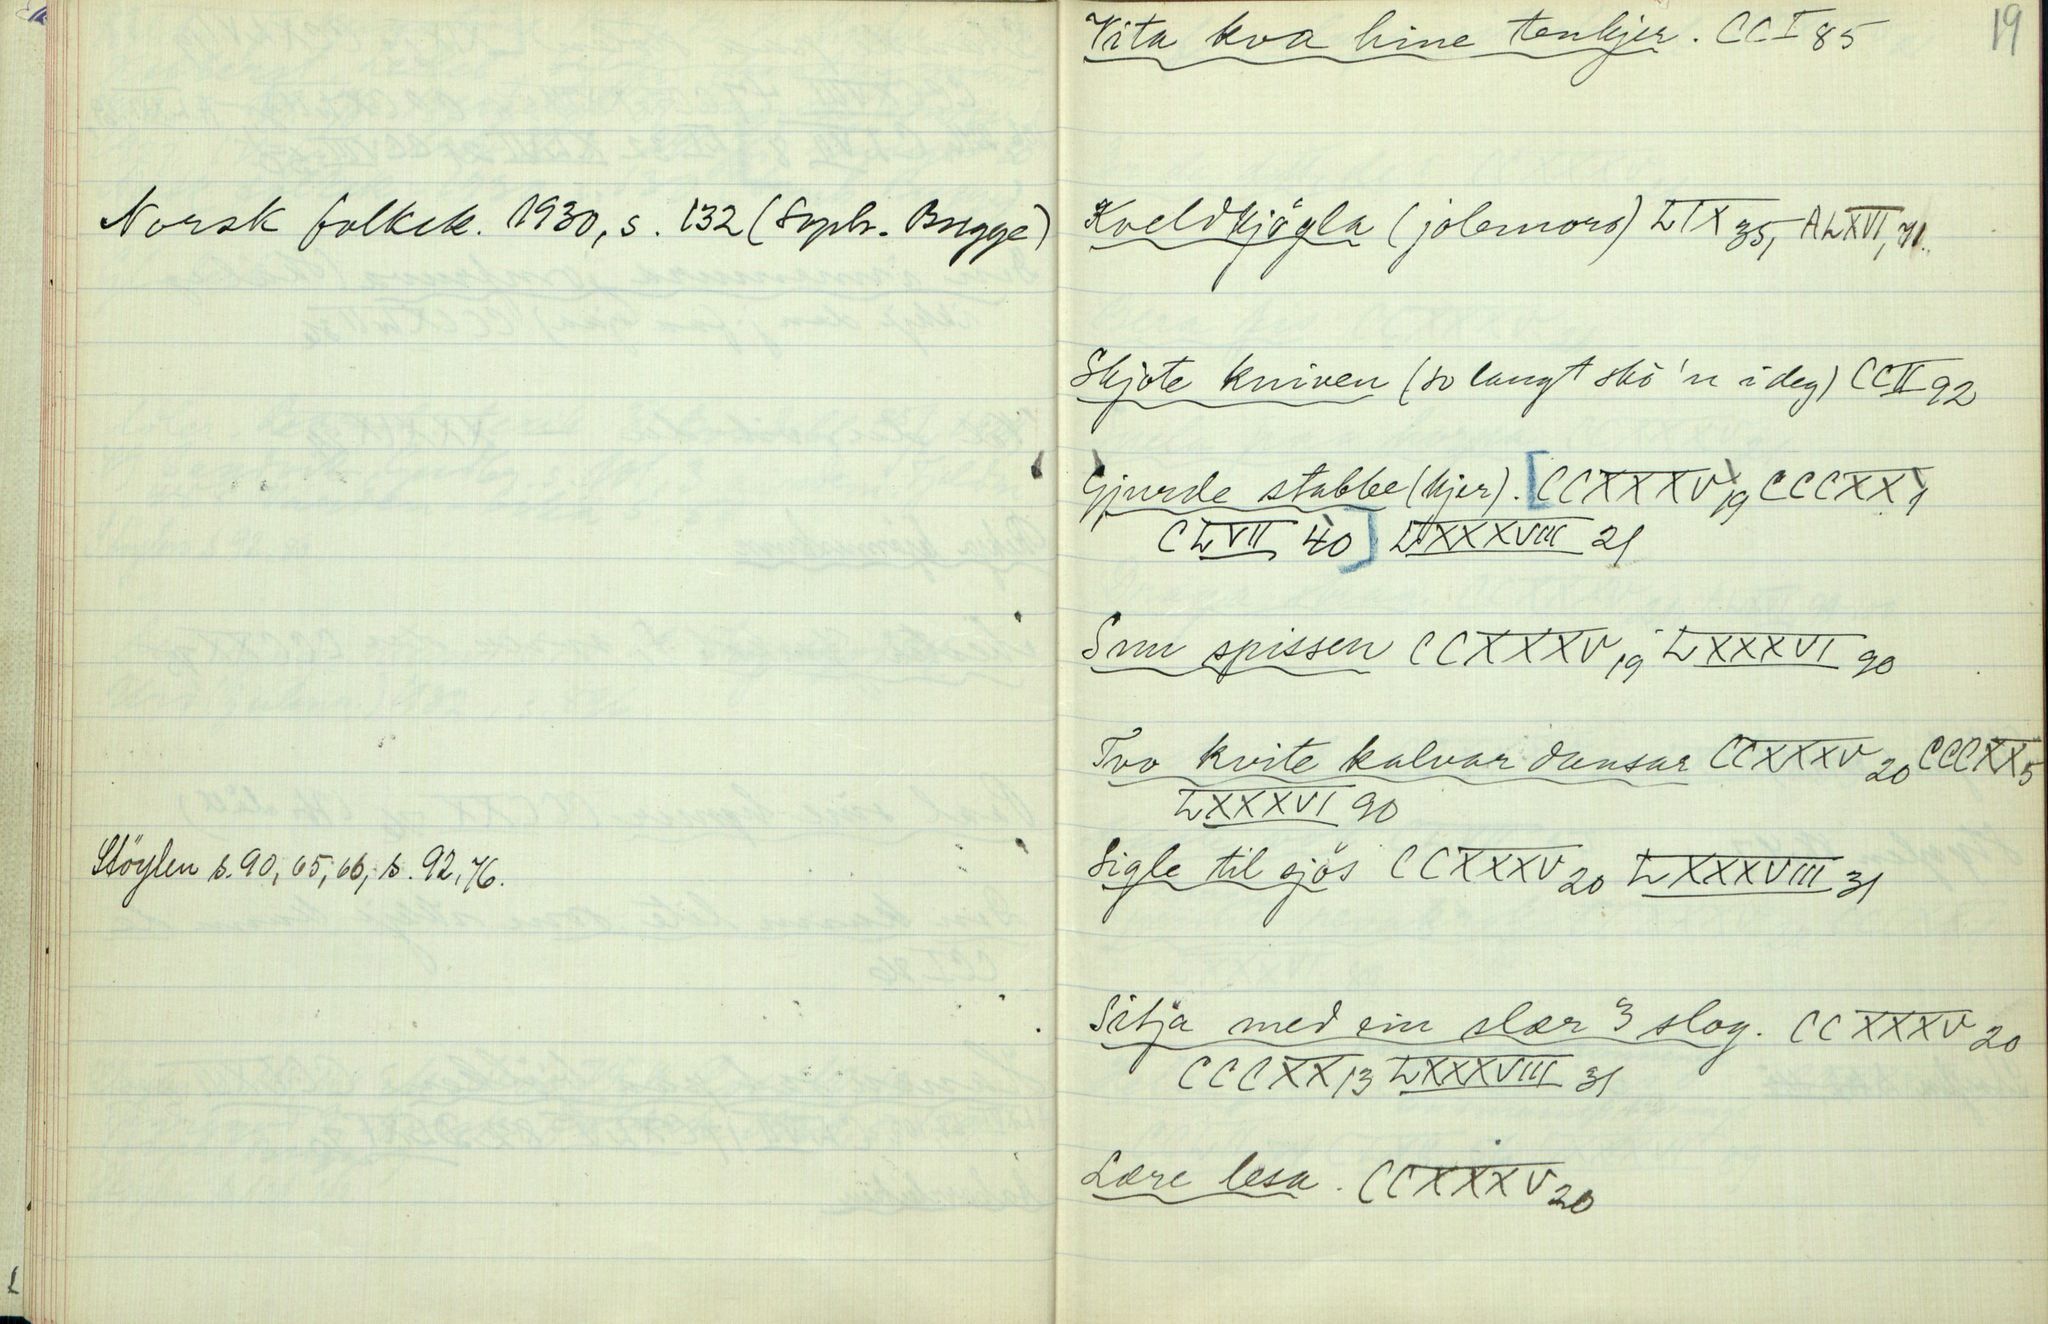 19
Norsk folkek. 1930, s. 132 (Soph. Bugge)
Støylen s. 90, 65, 66, s. 92, 76.
Vita kva hine tenkjer. CCI 85
Kveldkjøgla (jolemoro) LIX 35, ALXVI, 71.
Skjote kniven (so langt skò'n i deg) CCII 92
Gjurde stabbe (kjer). [CCXXXV 19 CCCXX 1
CLVII 40] LXXXVIII 21
Snu spissen CCXXXV 19 LXXXVI 90
Tvo kvite kalvar dansar CCXXXV 20 CCCXX 5
LXXXVI 90
Sigle til sjøs CCXXXV 20 LXXXVIII 31
Sitja med ein slær 3 slag. CCXXXV 20
CCCXX 13 LXXXVIII 31
Lære lesa. CCXXXV 20